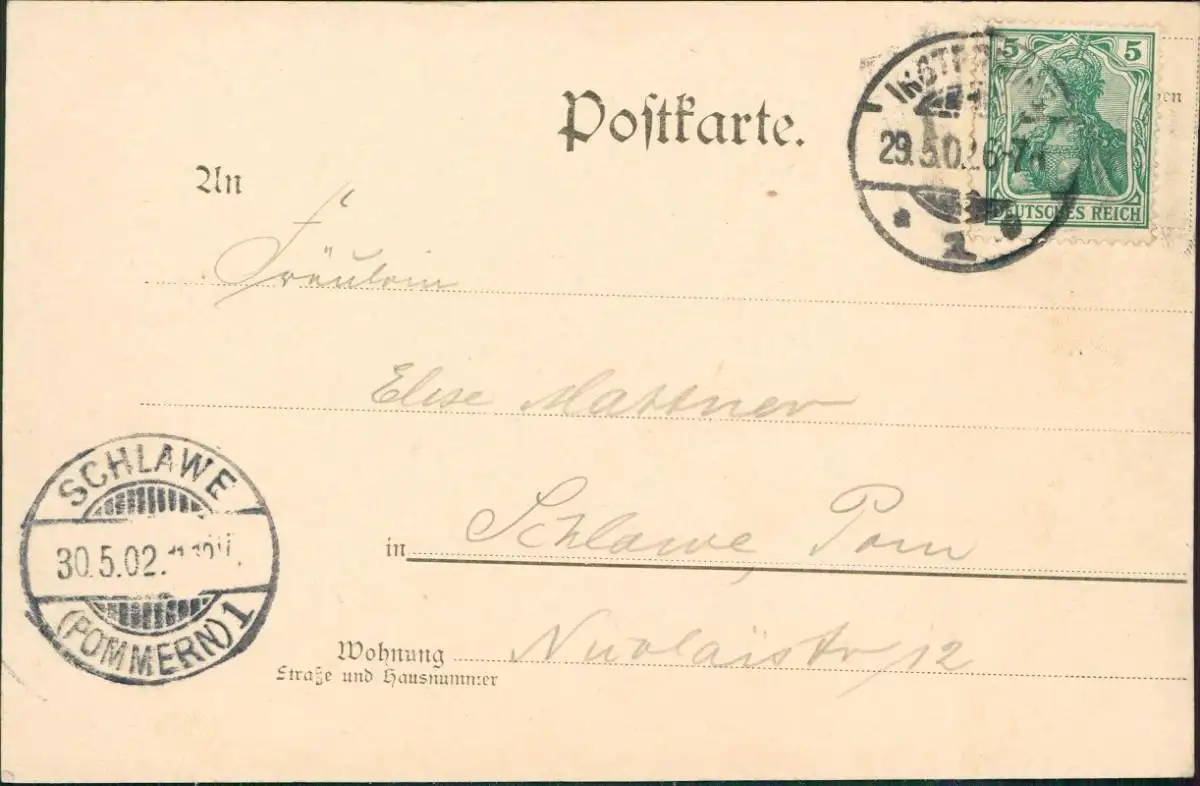 Postkarte.
5 5
DEUTSCHES REICH
29.5.02.6-7
1
An
Fräulein
Elise Mattner
SCHLAWE
30.5.02.
(POMMERN) 1
in Schlawe, Pom
Wohnung
Straße und Hausnummer
Nicolaistr 12